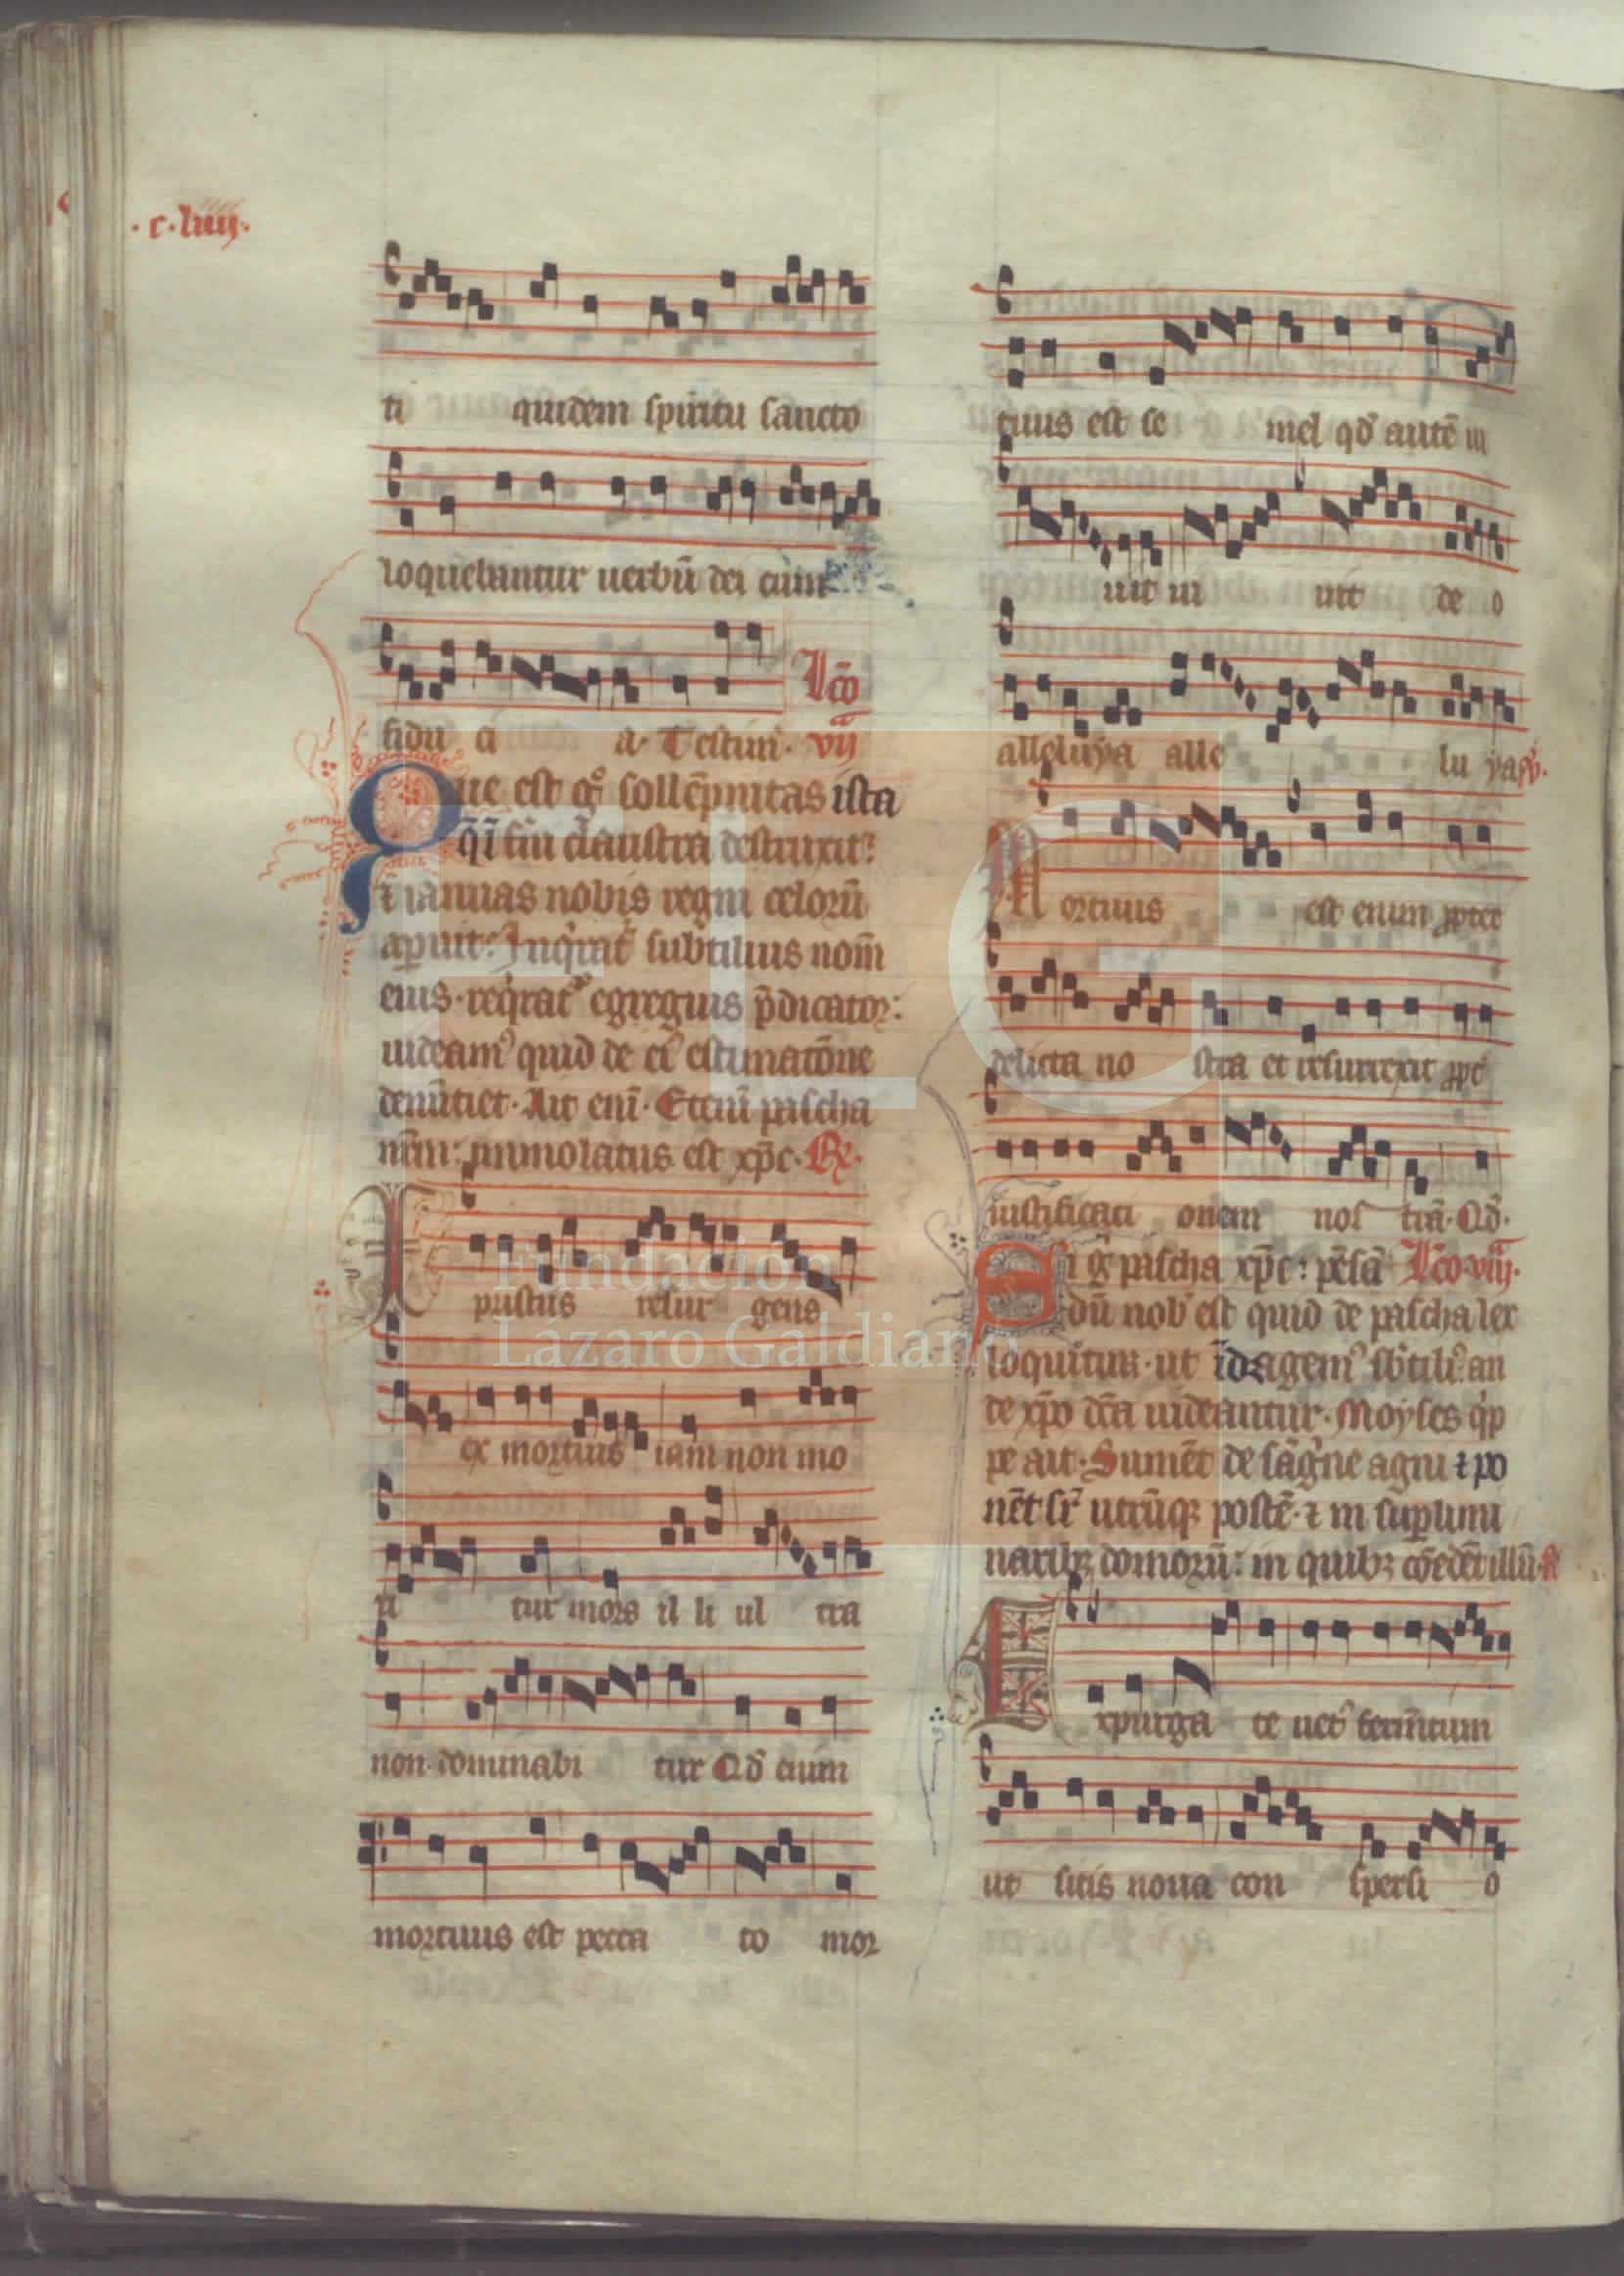 .c.liiij.
ti quidem spiritu sancto
loquebantur uerbū dei cum
fidu ci a. Testim̄. Lc̄o
vij
Que est g̊ sollēpnitas ista
q̄ īfīn claustra destruxit?
⁊ ianuas nobis regni celorū
aꝑuit? Inq̇rat̉ subtilius nom̄
eius. req̇rat̉ egregius p̄dicator:
uideam᷒ quid de ei᷒ estimatōne
denūtiet. Ait enī. Etenī pascha
nr̄m: immolatus est xp̄c. R̸.
X pristus resur gens
ex mortuis iam non mo
ri tur mors il li ul tra
non dominabi tur Qd̄ enim
mortuus est pecca to mor
tuus est se mel qd̄ autē ui
uit ui uit de o
alleluya alle lu ya ℣.
M ortuus est enim ꝓpter
delicta no stra et resurrexit ꝓpt̄
iustificati onem nos trā. Qd̄.
Si g̊ pascha xp̄c: pēsā Lc̄o viij.
dū nob᷒ est quid de pascha lex
loquitur. ut īdagem᷒ sb̄tili᷒: an
de xp̄o dc̄a uideantur. Moyses q̇p
pe ait. Sumēt de sāgine agni ⁊ po
nēt sr̄ utrūqꝫ postē. ⁊ in suꝑlimi
naribꝫ domorū: in quibꝫ cōedēt illū. R̸
E xpurga te uet᷒ ferm̄tum
ut sitis noua con spersi o
Fundación
Lázaro Galdiano
FLG